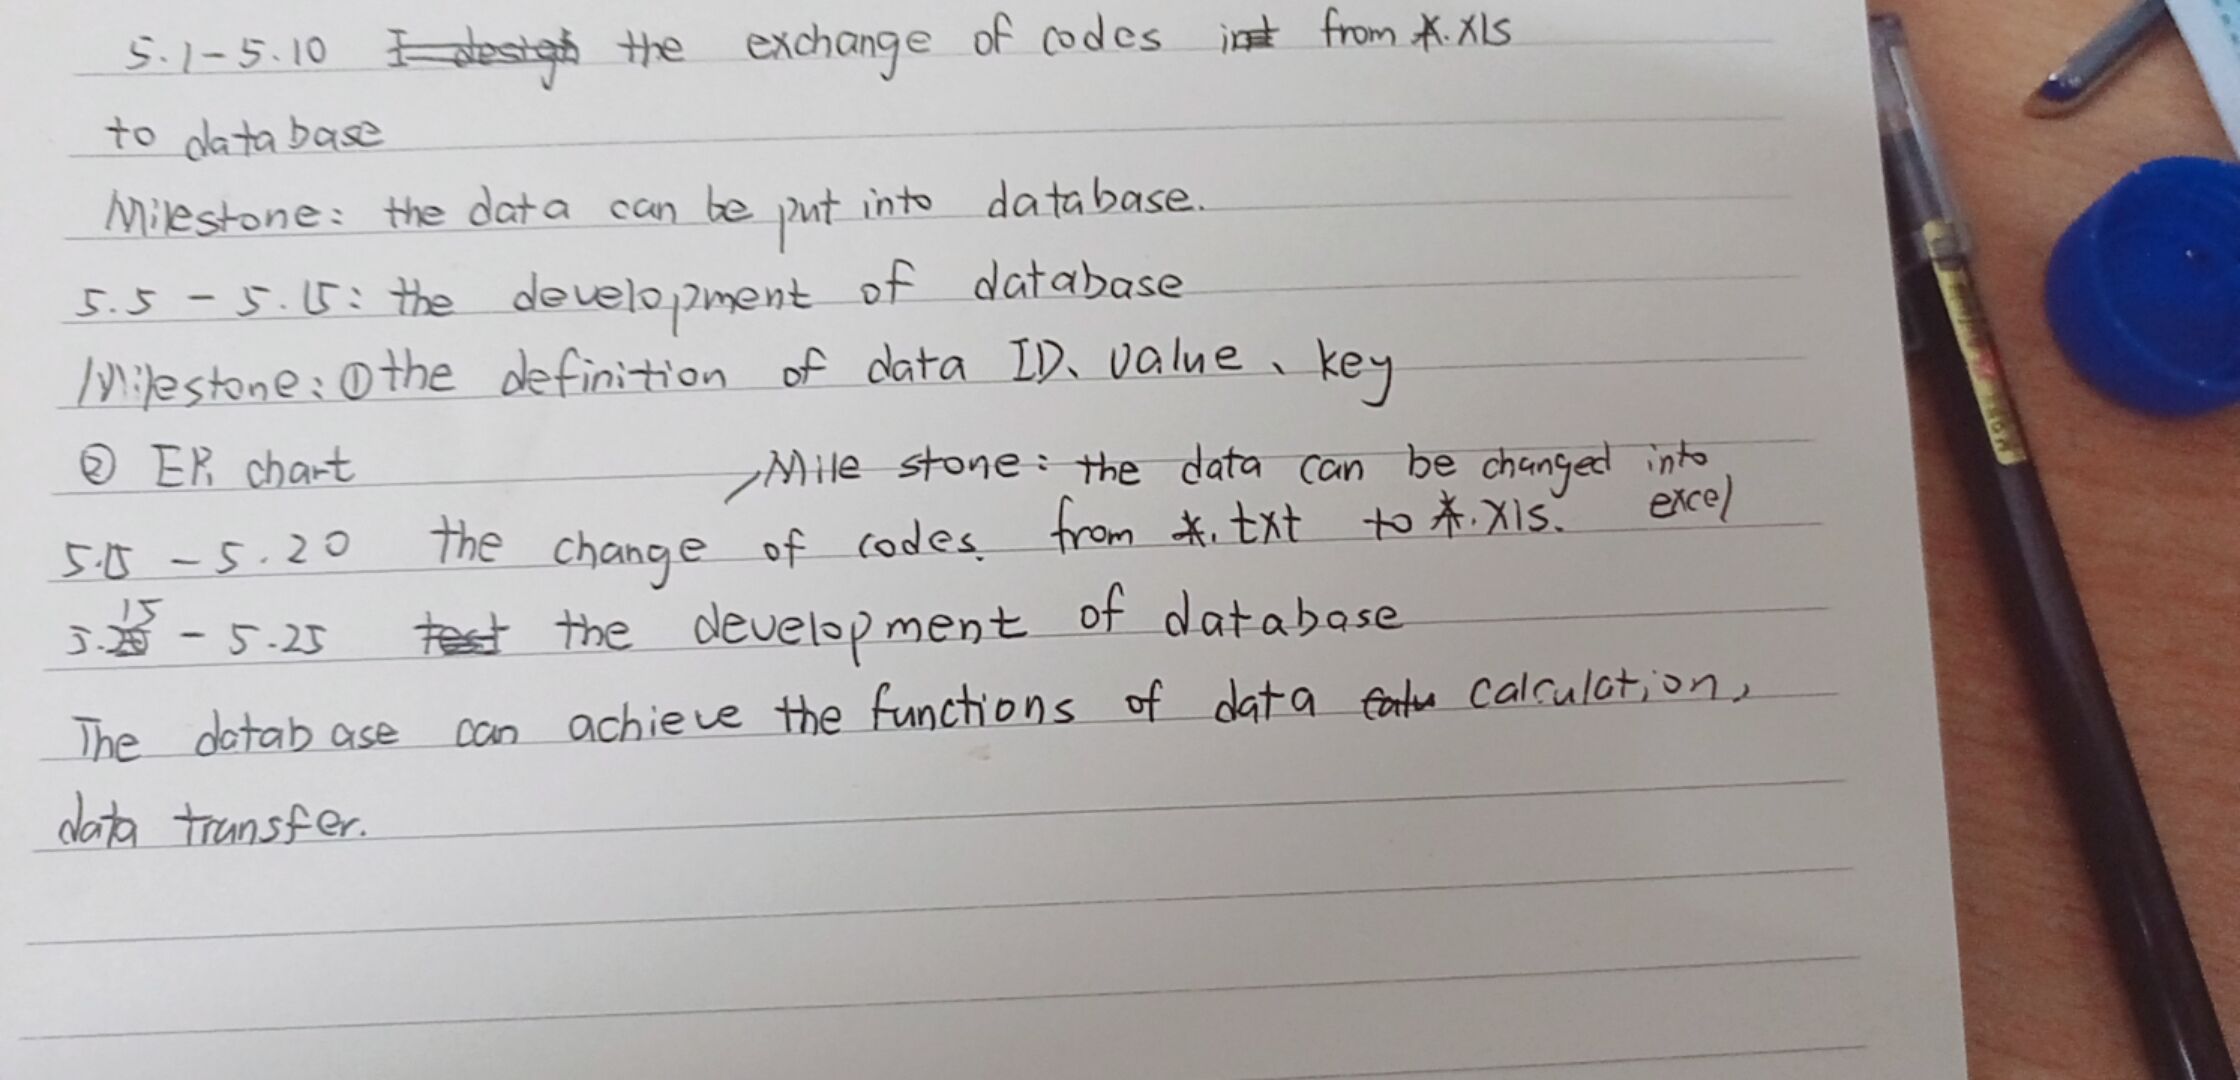 5.1-5.10 I design the exchange of codes int from *.xls
to database
Milestone: the data can be put into database.
5.5 - 5.15: the development of database
Milestone: ① the definition of data ID、value、key
② ER chart
Mile stone: the data can be changed into
excel
5.15 - 5.20 the change of codes. from *.txt to *.xls.
15
5.20 - 5.25 test the development of database
The database can achieve the functions of data calculation,
data transfer.